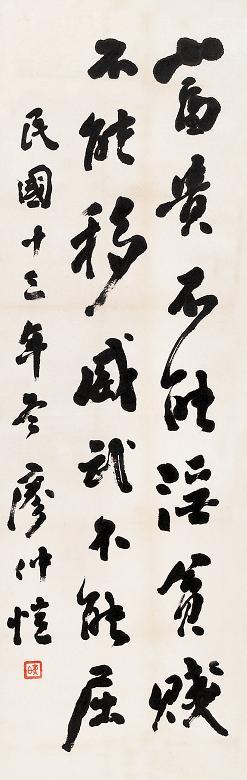 富貴不能淫貧賤
不能移威武不能屈
民國十三年冬廖仲愷